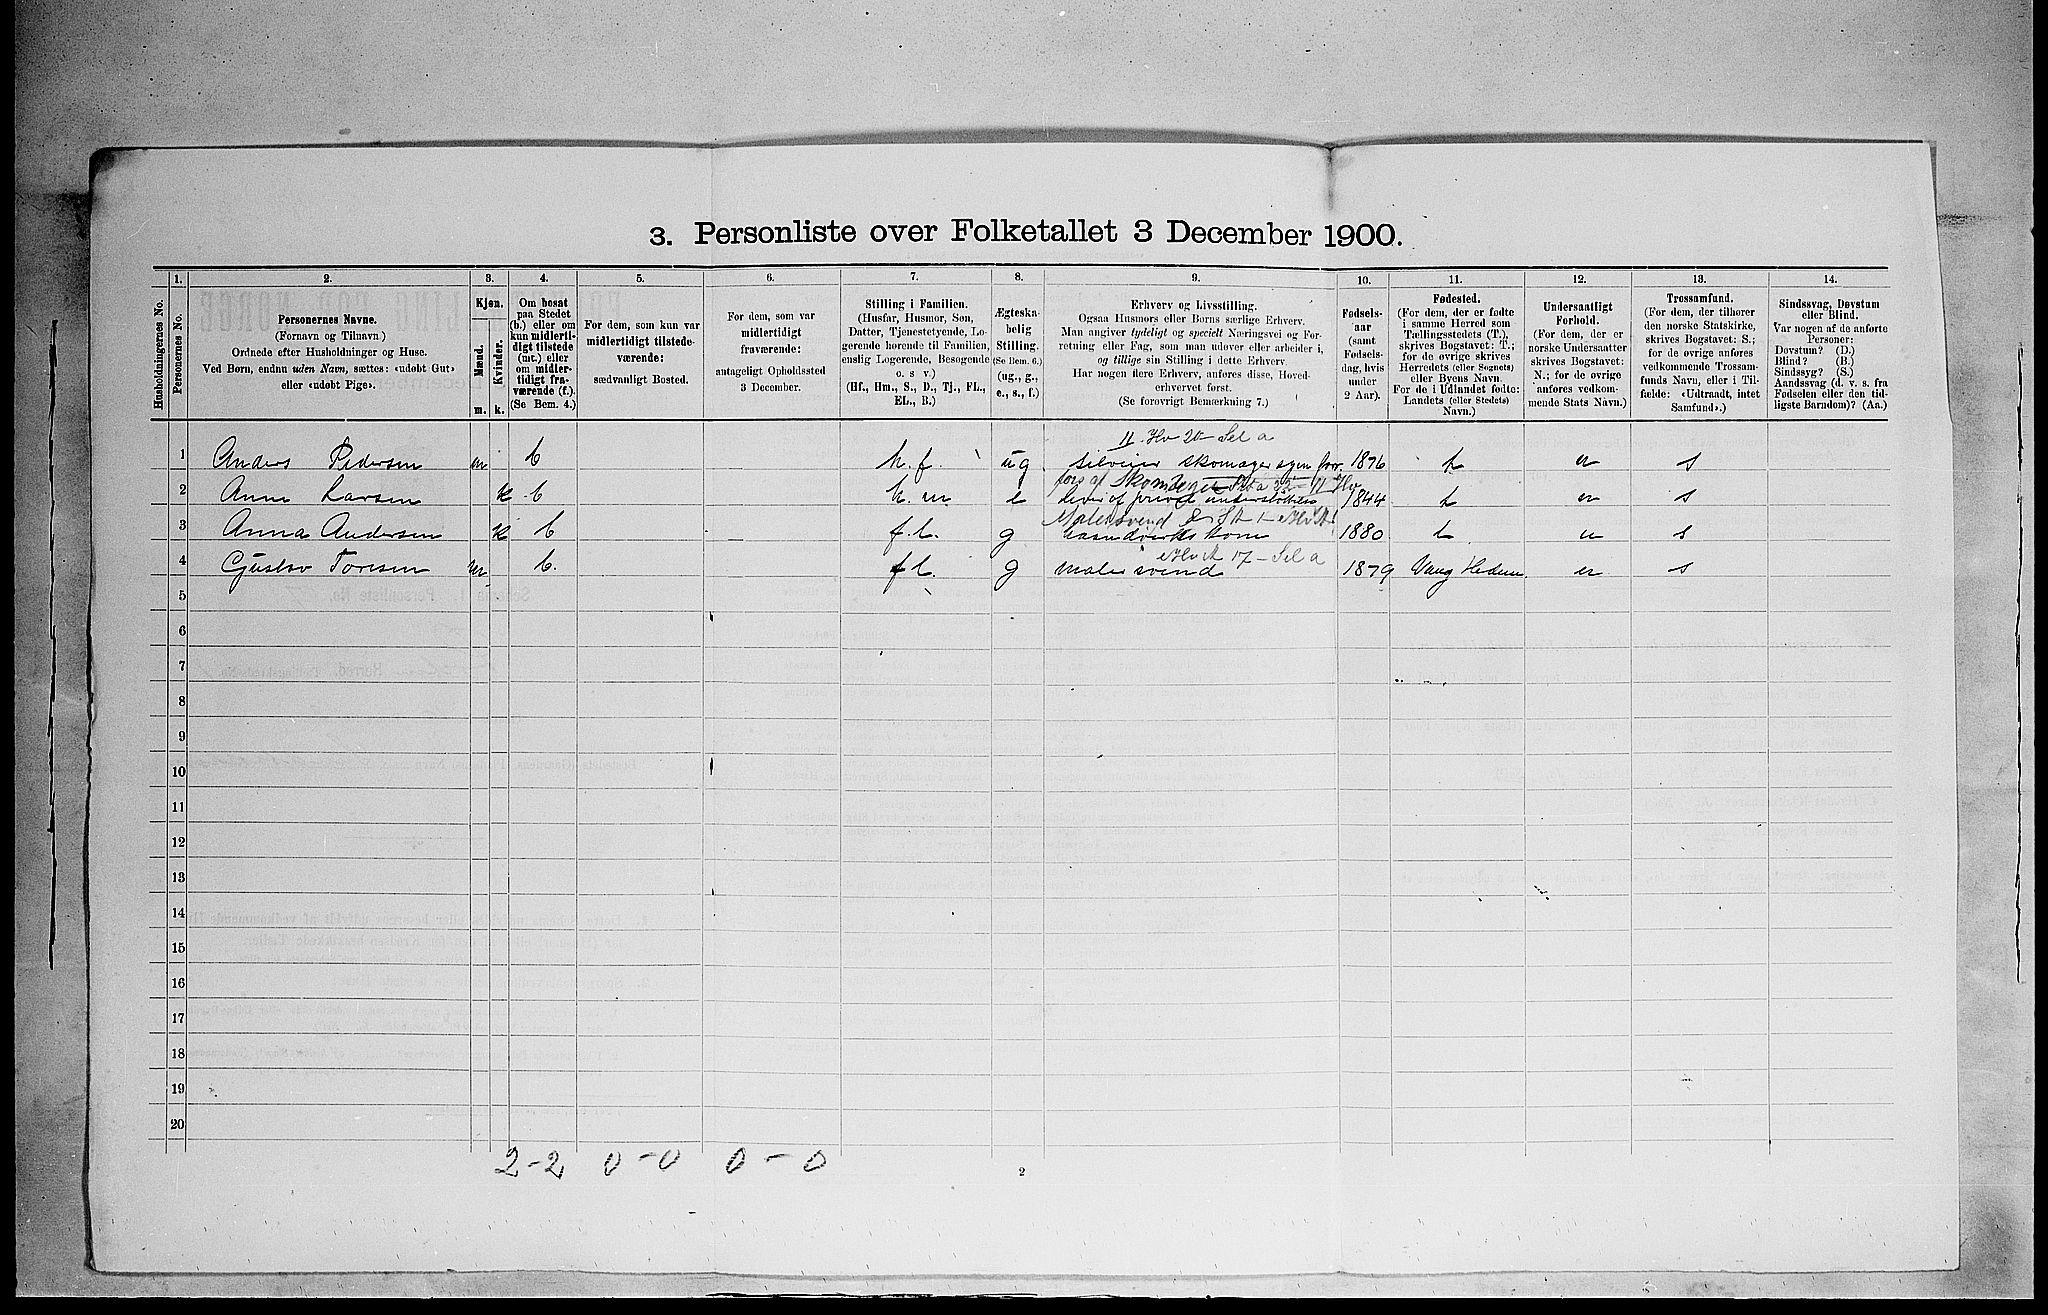 3. Personliste over Folketallet 3 December 1900.
1. 2. 3. 4. 5. 6. 7. 8. 9. 10. 11. 12. 13. 14.
Husholdningernes No.
Personernes No.
Personernes Navne.
(Fornavn og Tilnavn.)
Ordnede efter Husholdninger og Huse.
Ved Børn, endnu uden Navn, sættes: «udøbt Gut»
eller «udøbt Pige».
Kjøn.
Mænd.
Kvinder.
m. k.
Om bosat
paa Stedet
(b.) eller om
kun midlerti-
digt tilstede
(mt.) eller
om midler-
tidigt fra-
værende (f.).
(Se Bem. 4.)
For dem, som kun var
midlertidigt tilstede-
værende:
sædvanligt Bosted.
For dem, som var
midlertidigt
fraværende:
antageligt Opholdssted
3 December.
Stilling i Familien.
(Husfar, Husmor, Søn,
Datter, Tjenestetyende, Lo-
gerende hørende til Familien,
enslig Logerende, Besøgende
o. s. v.)
(Hf., Hm., S., D., Tj., FL.,
EL., B.)
Ægteska-
belig
Stilling.
(Se Bem. 6.)
(ug., g.,
e., s., f.)
Erhverv og Livsstilling.
Ogsaa Husmors eller Børns særlige Erhverv.
Man angiver tydeligt og specielt Næringsvei og For-
retning eller Fag, som man udøver eller arbeider i,
og tillige sin Stilling i dette Erhverv.
Har nogen flere Erhverv, anføres disse, Hoved-
erhvervet først.
(Se forøvrigt Bemærkning 7.)
Fødsels-
aar
(samt
Fødsels-
dag, hvis
under
2 Aar).
Fødested.
(For dem, der er fødte
i samme Herred som
Tællingsstedets (T.),
skrives Bogstavet: T.;
for de øvrige skrives
Herredets (eller Sognets)
eller Byens Navn.
For de i Udlandet fødte:
Landets (eller Stedets)
Navn.)
Undersaatligt
Forhold.
(For dem, der er
norske Undersaatter
skrives Bogstavet:
N.; for de øvrige
anføres vedkom-
mende Stats Navn.)
Trossamfund.
(For dem, der tilhører
den norske Statskirke,
skrives Bogstavet: S.;
for de øvrige anføres
vedkommende Trossam-
funds Navn, eller i Til-
fælde: «Udtraadt, intet
Samfund».)
Sindssvag, Døvstum
eller Blind.
Var nogen af de anførte
Personer:
Døvstum? (D.)
Blind? (B.)
Sindssyg? (S.)
Aandssvag (d. v. s. fra
Fødselen eller den tid-
ligste Barndom)? (Aa.)
1 Anders Pedersen m b h. f. ug. skomager egen 1876 t n s
2 Anne Larsen k b h. m e lever af privat understøttelse 1844 t n s
3 Anna Andersen k b f. l. g 1880 t n s
4 Gustav Toresen m b. f l. g malersvend 1879 Vang Hedem. n s
5
6
7
8
9
10
11
12
13
14
15
16
17
18
19
20
2-2 0-0 0-0
2